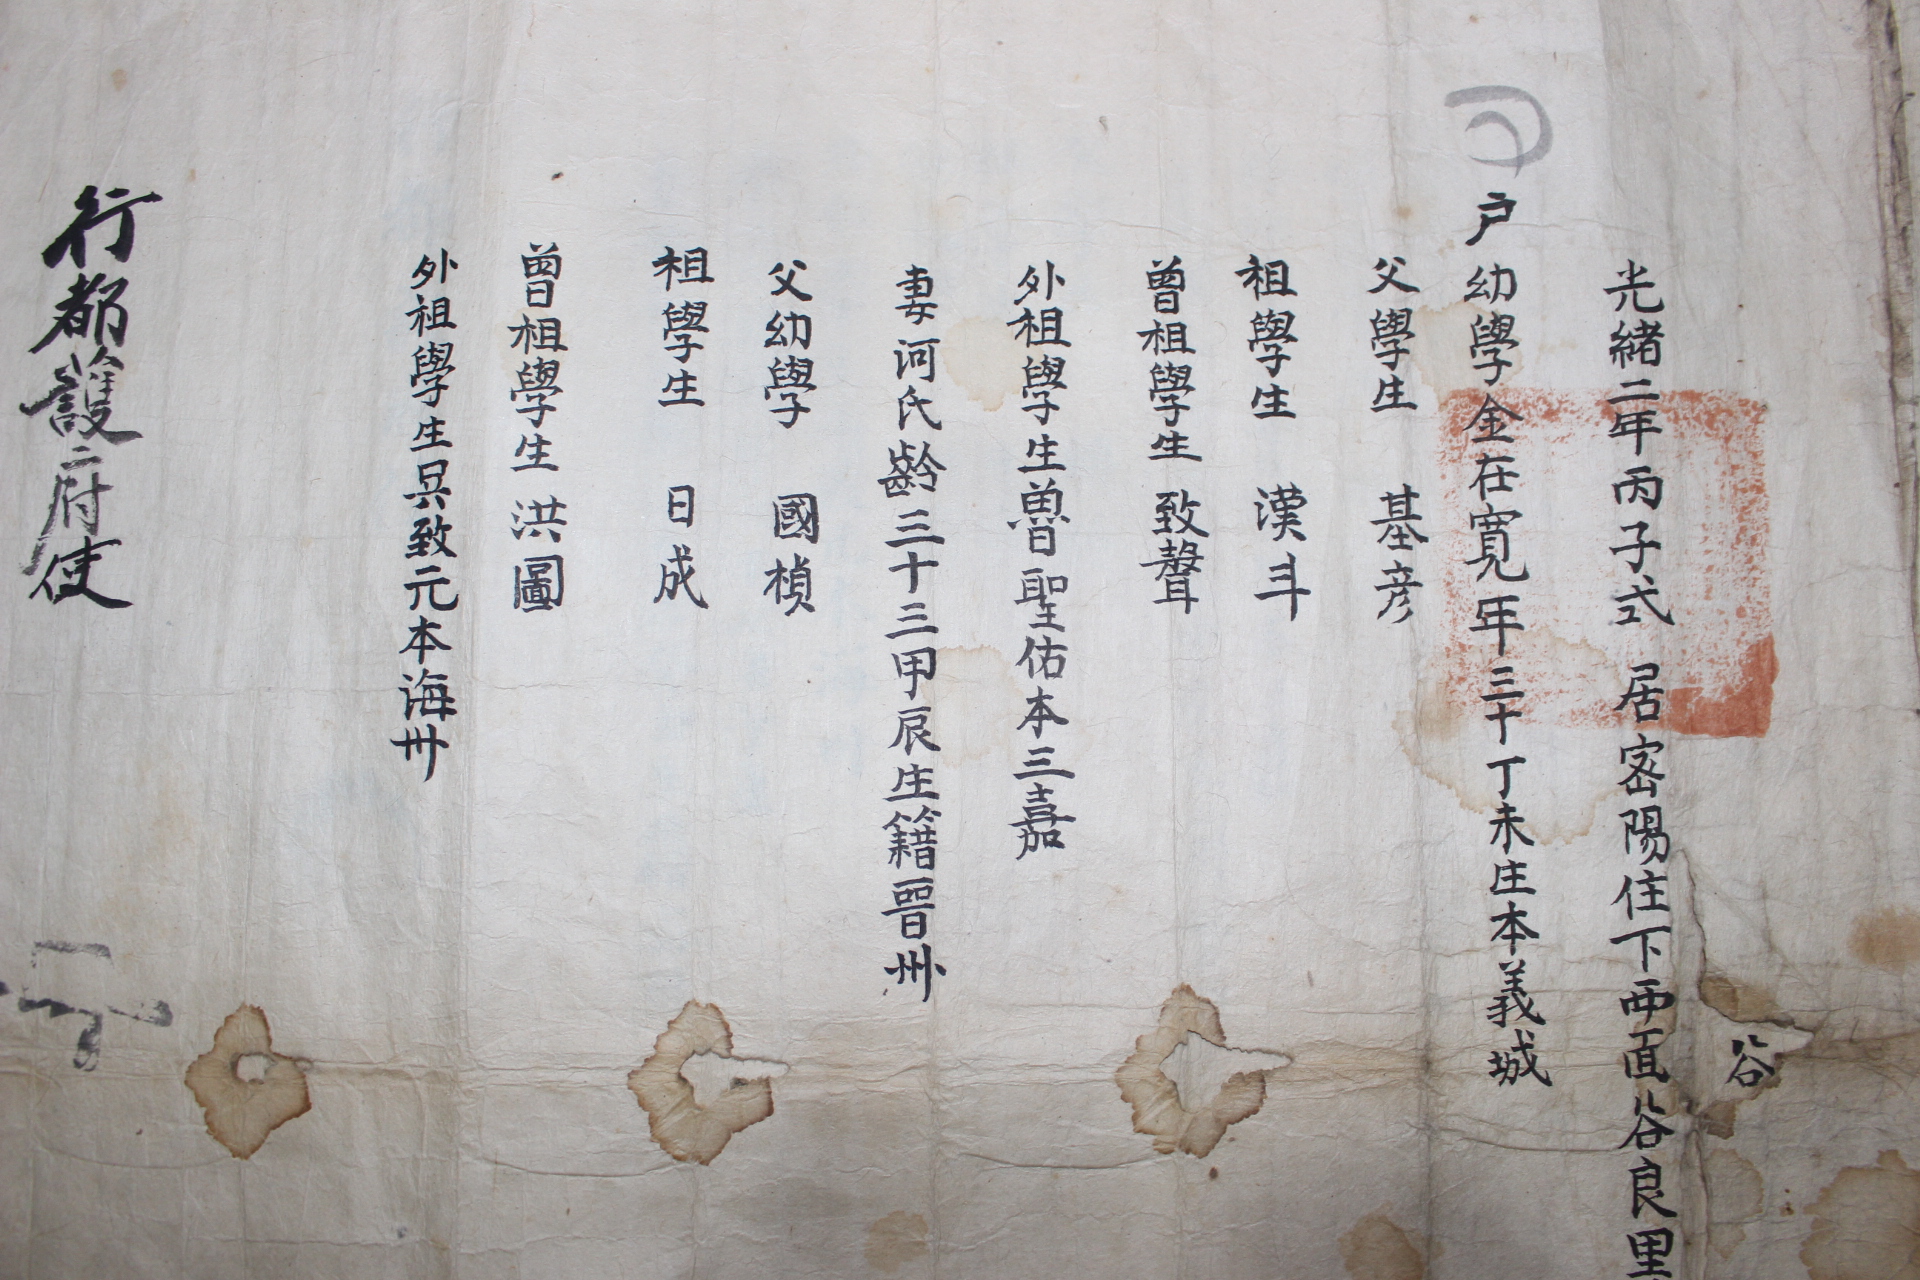 谷
光緒二年丙子式 居密陽住下西面谷良里
戶 幼學金在寬年三十丁未生本義城
父學生 基彦
祖學生 漢斗
曾祖學生 致聲
外祖學生曽聖佑本三嘉
妻河氏齡三十三甲辰生籍晋州
父幼學 國楨
祖學生 日成
曾祖學生 洪圖
外祖學生吳致元本海州
行都護府使